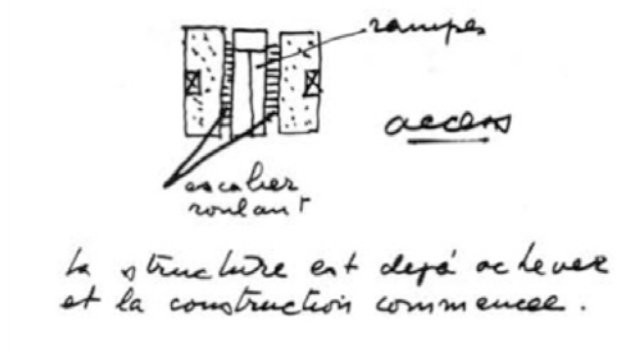 rampes
access
escalier
roulant
la structure est dejá achever
et la construction commencee.